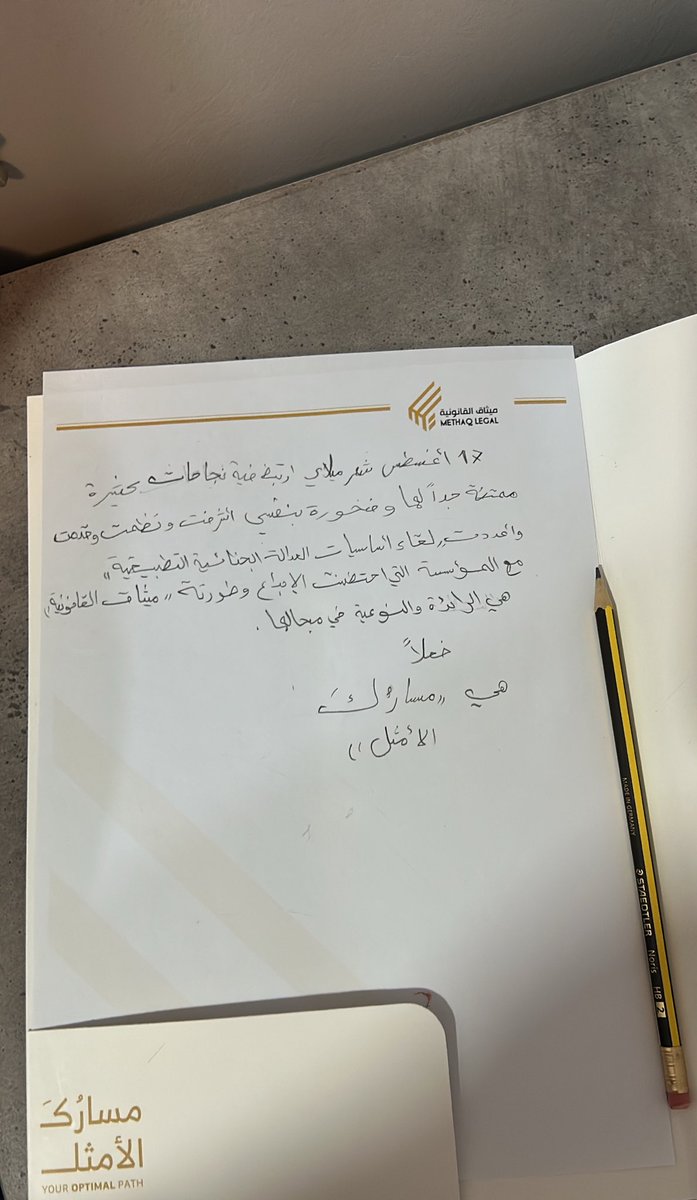 ميثاق القانونية
METHAQ LEGAL
17 أغسطس شهر ميلادي ارتبط فيه نجاحات كثيرة
ممتنة جداً لها و فخورة بنفسي اشرفت ونظمت وقدمت
وأعددت "لقاء اساسيات العدالة الجنائية التطبيقية"
مع المؤسسة التي احتضنت الإبداع وطورته "ميثاق القانونية"
هي الرائدة والنوعية في مجالها.
فعلاً
هي "مسارُكَ
الأمثل"
MADE IN GERMANY
STAEDTLER Noris HB 2
مسارُكَ
الأمثل
YOUR OPTIMAL PATH